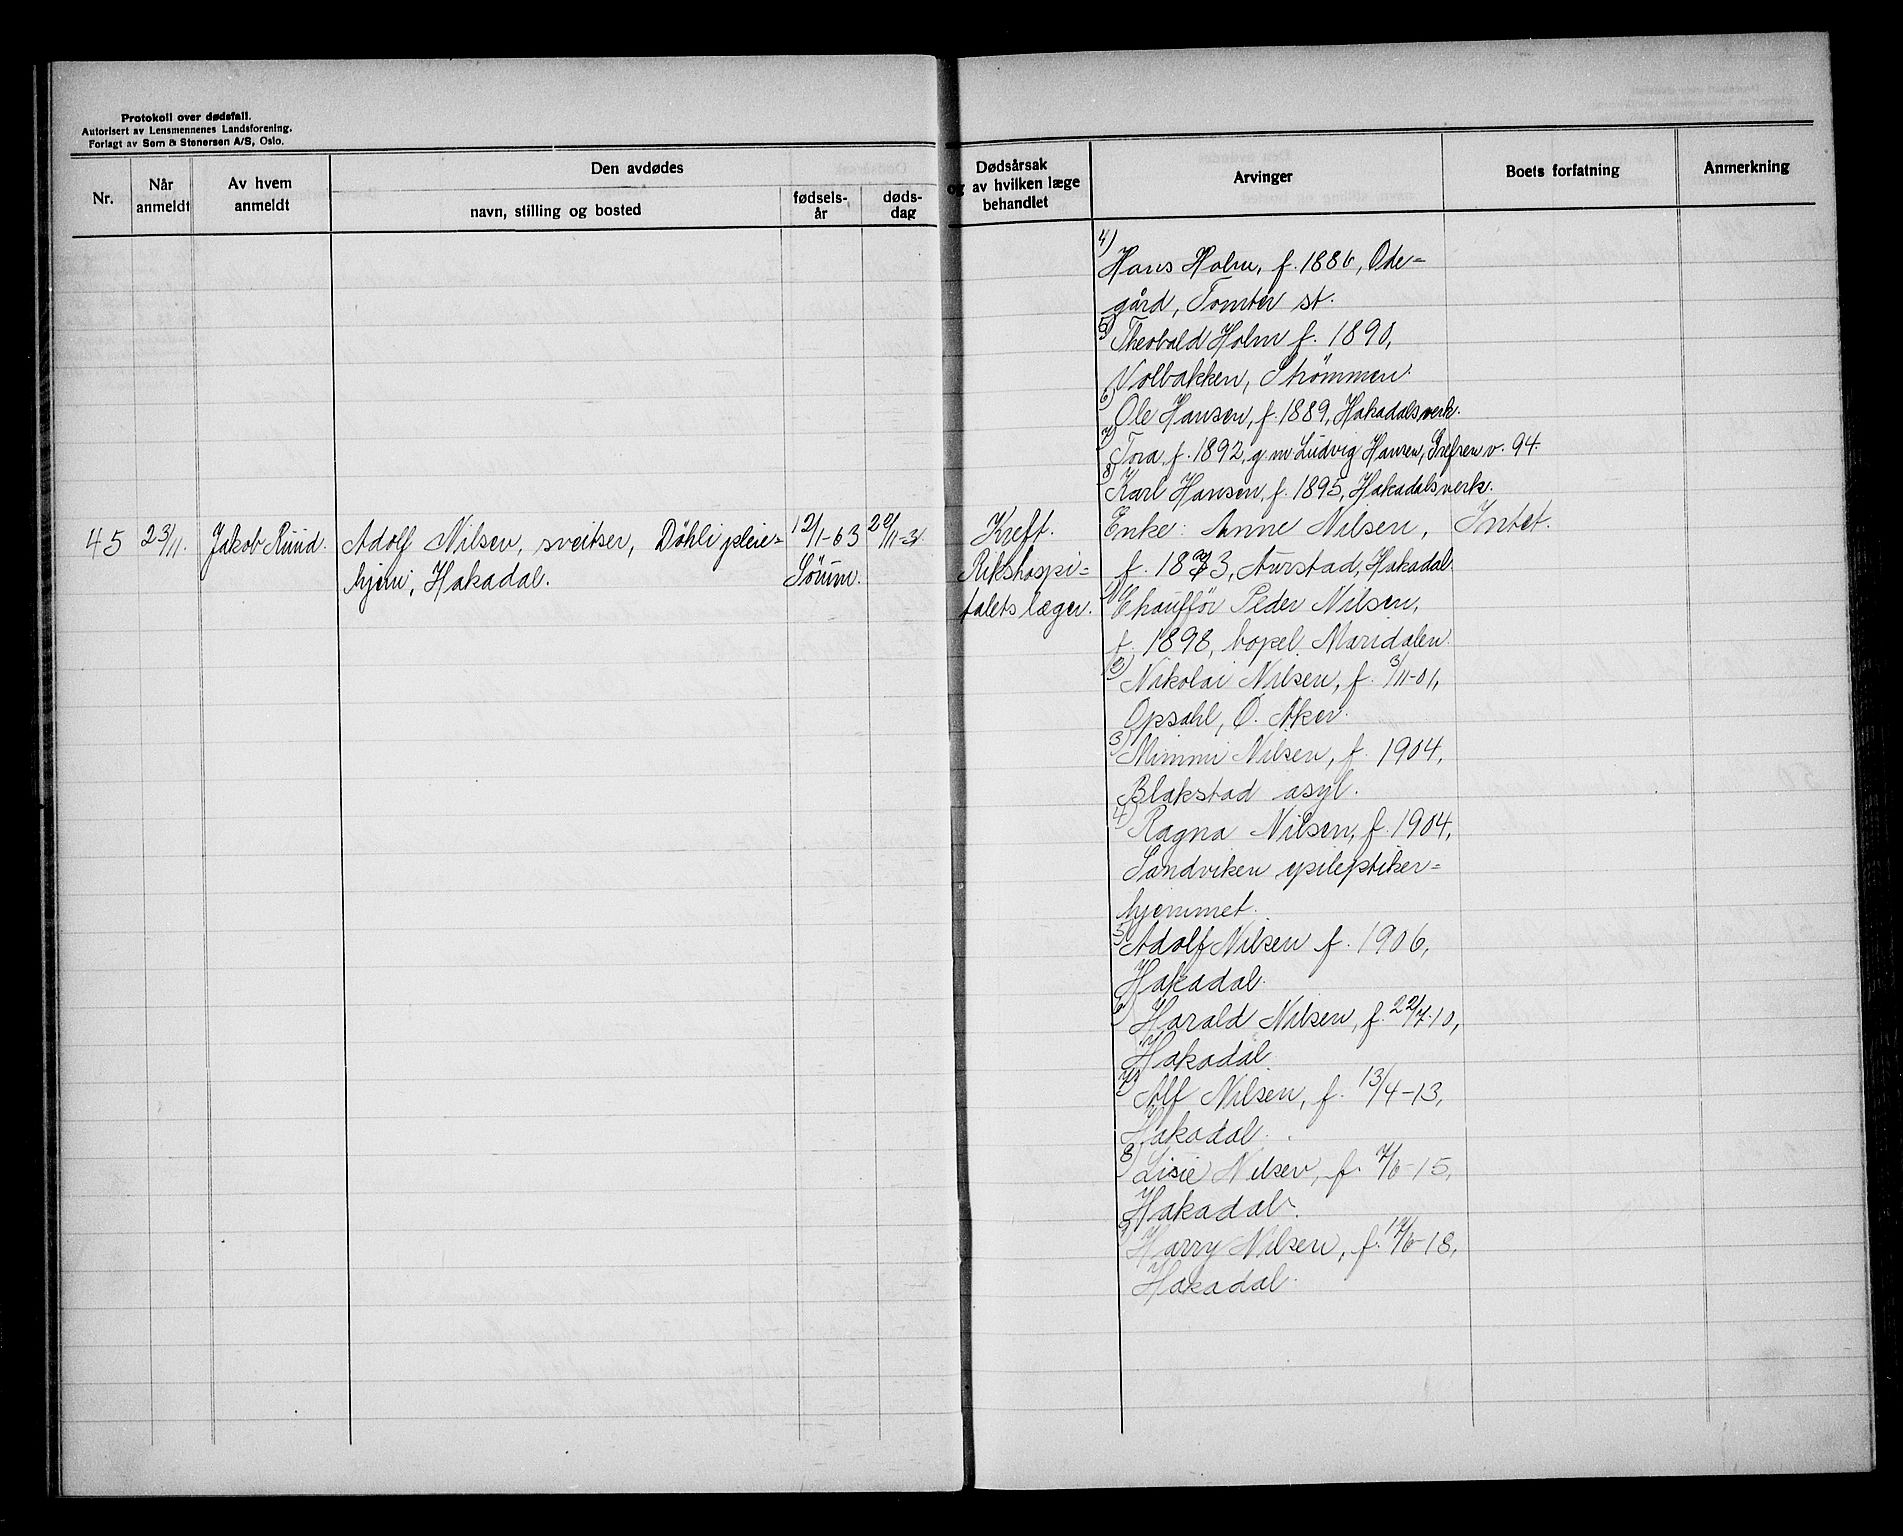 Protokoll over dødsfall.
Autorisert av Lensmennenes Landsforening.
Forlagt av Sem & Stenersen A/S, Oslo.
Nr.
Når anmeldt
Av hvem anmeldt
Den avdødes
navn, stilling og bosted
fødselsår
dødsdag
Dødsårsak og av hvilken læge behandlet
Arvinger
Boets forfatning
Anmerkning
4) Hans Holm, f. 1886, Ode-
gård, Tomter st.
5) Theobald Holm f. 1890,
Volbakken, Strømmen.
6) Ole Hansen, f. 1889, Hakadalsverk.
7) Tora, f. 1892, g. m Ludvig Hansen, Grefsen v. 94.
8) Karl Hansen, f. 1895, Hakadalsverk.
45 23/11. Jakob Ruud. Adolf Nilsen, sveitser, Döhli pleie- 12/1-63 20/11-31 Kreft. Enke: Anne Nilsen, Intet.
hjem, Hakadal. Sörum. Rikshospi- f. 1873, Aurstad, Hakadal.
talets læger. 1) Chaufför Peder Nilsen,
f. 1898, bopel Maridalen.
2) Nikolai Nilsen, f. 3/11-01,
Opsahl, Ö. Aker.
3) Mimmi Nilsen, f. 1904,
Blakstad asyl.
4) Ragna Nilsen, f. 1904,
Sandviken epileptiker-
hjemmet.
5) Adolf Nilsen f. 1906,
Hakadal.
6) Harald Nilsen, f. 22/7-10,
Hakadal.
7) Alf Nilsen, f. 13/4-13,
Hakadal.
8) Lisie Nilsen, f. 7/6-15,
Hakadal.
9) Harry Nilsen, f. 17/6-18,
Hakadal.